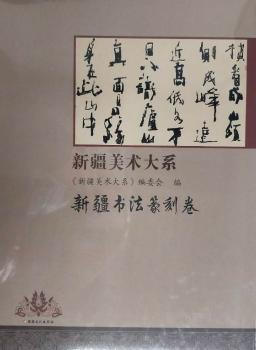 横看成嶺
側成峰遠
近高低各不
同不識廬山
真面目只緣
身在此山中
新疆美术大系
《新疆美术大系》编委会 编
新疆书法篆刻卷